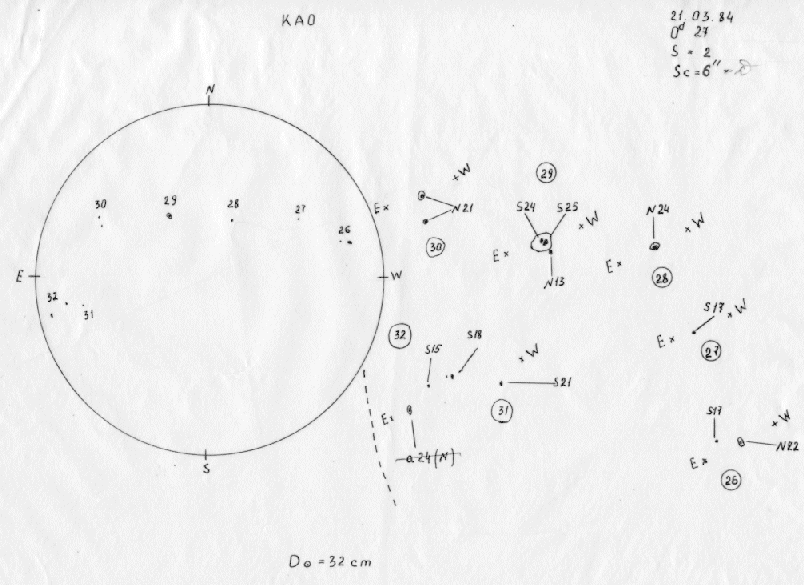 KAO
21.03.84
0ᵈ 27
S = 2
Sc = 6"
N
30
29
28
27
26
E
W
32
31
S
E × × W
N21
30
29
S24 S25
E × × W
N13
N24
E × × W
28
S17
E × × W
27
32
S15
S18
E ×
a24(N)
× W
S21
31
S17
E × × W
N22
26
D⊙ = 32 cm